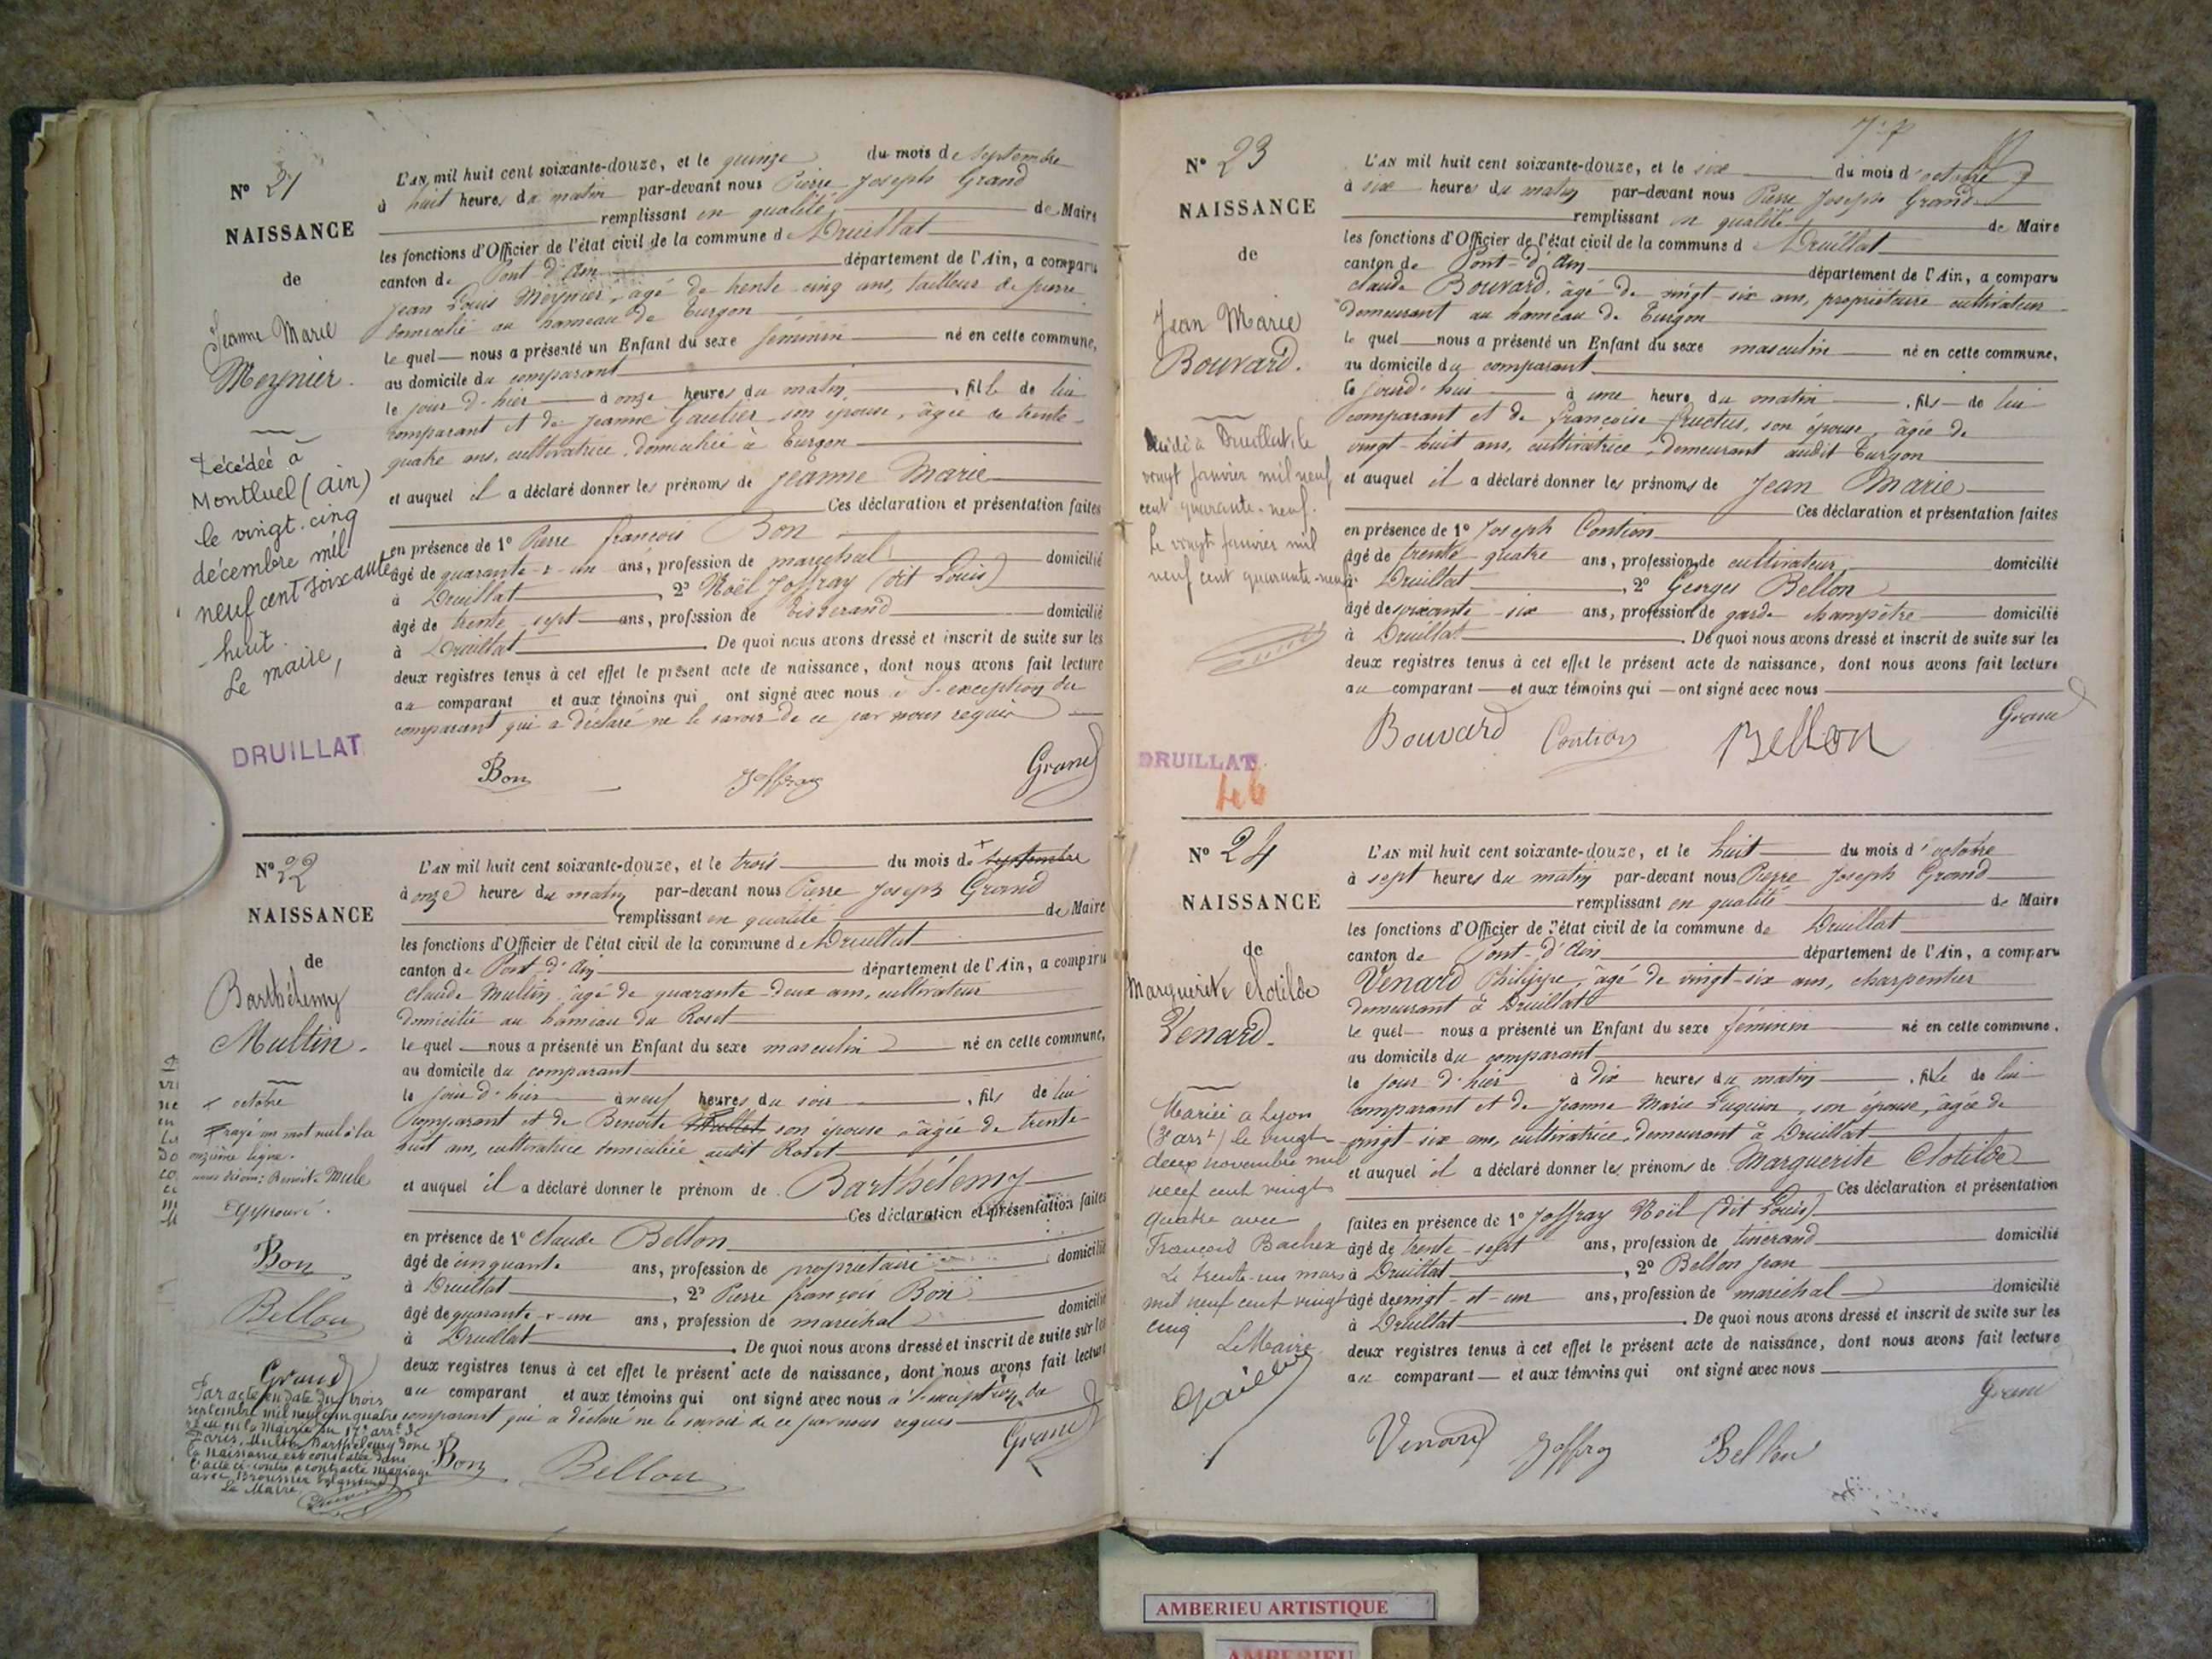 N° 21
NAISSANCE
de
Jeanne Marie
Meynier.
Décédée à
Montluel (Ain)
le vingt-cinq
décembre mil
neuf cent soixante
-huit.
Le maire,
DRUILLAT
L'AN mil huit cent soixante-douze, et le quinze du mois de septembre
à huit heures du matin par-devant nous Pierre Joseph Grand
remplissant en qualité de Maire
les fonctions d'Officier de l'état civil de la commune de Druillat
canton de Pont d'Ain département de l'Ain, a comparu
Jean Louis Meynier, âgé de trente-cinq ans, tailleur de pierre
domicilié au hameau de Turgon
le quel nous a présenté un Enfant du sexe féminin né en cette commune,
au domicile du comparant
le jour d'hier à onze heures du matin, fille de lui
comparant et de Jeanne Gautier son épouse, âgée de trente-
quatre ans, cultivatrice, domiciliée à Turgon
et auquel il a déclaré donner les prénoms de Jeanne Marie
Ces déclaration et présentation faites
en présence de 1° Pierre françois Bon
âgé de quarante-r-un ans, profession de maréchal domicilié
à Druillat, 2° Noël Joffray (dit Louis)
âgé de trente-sept ans, profession de tisserand domicilié
à Druillat. De quoi nous avons dressé et inscrit de suite sur les
deux registres tenus à cet effet le présent acte de naissance, dont nous avons fait lecture
au comparant et aux témoins qui ont signé avec nous à l'exception du
comparant qui a déclaré ne le savoir de ce par nous requis
Bon Joffray Grand
N° 22
NAISSANCE
de
Barthélemy
Multin.
x octobre
rayé un mot nul à la
onzième ligne.
nous disons: Benoite Mule
Approuvé.
Bon
Bellon
Grand
Par acte en date du trois
septembre mil neuf cent quatre
reçu en la Mairie du 17e arrt de
Paris, Multin Barthélemy dont
la naissance est constatée dans
l'acte ci-contre a contracté mariage
avec
Le Maire
L'AN mil huit cent soixante-douze, et le trois du mois de x septembre
à onze heures du matin par-devant nous Pierre Joseph Grand
remplissant en qualité de Maire
les fonctions d'Officier de l'état civil de la commune de Druillat
canton de Pont-d'Ain département de l'Ain, a comparu
Claude Multin, âgé de quarante-deux ans, cultivateur
domicilié au hameau du Roset
le quel nous a présenté un Enfant du sexe masculin né en cette commune,
au domicile du comparant
le jour d'hier à neuf heures du soir, fils de lui
Comparant et de Benoite Mullet son épouse âgée de trente-
huit ans, cultivatrice domiciliée audit Roset
et auquel il a déclaré donner le prénom de Barthélemy
Ces déclaration et présentation faites
en présence de 1° Claude Bellon
âgé de cinquante ans, profession de propriétaire domicilié
à Druillat, 2° Pierre françois Bon
âgé de quarante-r-un ans, profession de maréchal domicilié
à Druillat. De quoi nous avons dressé et inscrit de suite sur les
deux registres tenus à cet effet le présent acte de naissance, dont nous avons fait lecture
au comparant et aux témoins qui ont signé avec nous à l'exception du
comparant qui a déclaré ne le savoir de ce par nous requis
Bon Bellon Grand
N° 23
NAISSANCE
de
Jean Marie
Bouvard.
Décédé à Druillat, le
vingt Janvier mil neuf
cent quarante-neuf.
Le vingt Janvier mil
neuf cent quarante-neuf
DRUILLAT
46
L'AN mil huit cent soixante-douze, et le six du mois d'octobre
à six heures du matin par-devant nous Pierre Joseph Grand
remplissant en qualité de Maire
les fonctions d'Officier de l'état civil de la commune d Druillat
canton de Pont-d'Ain département de l'Ain, a comparu
Claude Bouvard, âgé de vingt-six ans, propriétaire cultivateur
demeurant au hameau de Turgon
le quel nous a présenté un Enfant du sexe masculin né en cette commune,
au domicile du comparant
le jourd'hui à une heure du matin, fils de lui
comparant et de françoise Fructus, son épouse, âgée de
vingt-huit ans, cultivatrice, demeurant audit Turgon
et auquel il a déclaré donner les prénoms de Jean Marie
Ces déclaration et présentation faites
en présence de 1° Joseph Contion
âgé de trente-quatre ans, profession de cultivateur domicilié
à Druillat, 2° Georges Bellon
âgé de soixante-six ans, profession de garde champêtre domicilié
à Druillat. De quoi nous avons dressé et inscrit de suite sur les
deux registres tenus à cet effet le présent acte de naissance, dont nous avons fait lecture
au comparant et aux témoins qui ont signé avec nous
Bouvard Contion Bellon Grand
N° 24
NAISSANCE
de
Marguerite Clotilde
Venard.
Mariée à Lyon
(3e arrt) le vingt
deux novembre mil
neuf cent vingt
quatre avec
François Bachex
Le trente-un mars
mil neuf cent vingt
cinq
Le Maire
L'AN mil huit cent soixante-douze, et le huit du mois d'octobre
à sept heures du matin par-devant nous Pierre Joseph Grand
remplissant en qualité de Maire
les fonctions d'Officier de l'état civil de la commune de Druillat
canton de Pont-d'Ain département de l'Ain, a comparu
Venard Philippe, âgé de vingt-six ans, charpentier
demeurant à Druillat
le quel nous a présenté un Enfant du sexe féminin né en cette commune,
au domicile du comparant
le jour d'hier à dix heures du matin, fille de lui
comparant et de Jeanne Marie Luguin, son épouse, âgée de
vingt-six ans, cultivatrice, demeurant à Druillat
et auquel il a déclaré donner les prénoms de Marguerite Clotilde
Ces déclaration et présentation
faites en présence de 1° Joffray Noël (dit Louis)
âgé de trente-sept ans, profession de tisserand domicilié
à Druillat, 2° Bellon Jean
âgé de vingt-et-un ans, profession de maréchal domicilié
à Druillat. De quoi nous avons dressé et inscrit de suite sur les
deux registres tenus à cet effet le présent acte de naissance, dont nous avons fait lecture
au comparant et aux témoins qui ont signé avec nous
Grand
Venard Joffray Bellon
AMBERIEU ARTISTIQUE
AMBERIEU